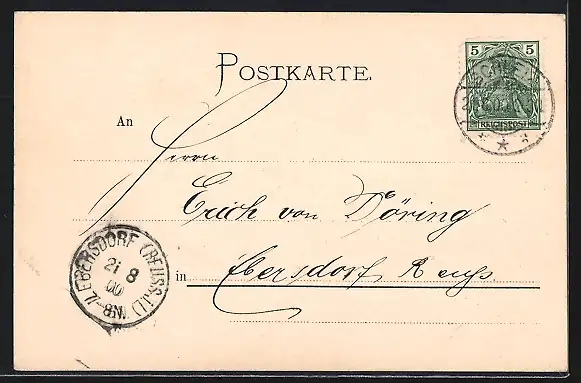 POSTKARTE.
5 5
REICHSPOST
An
Herrn
Erich von Döring
in Ebersdorf Reuss.
EBERSDORF (REUSS j.L)
21 8
00
-8N.